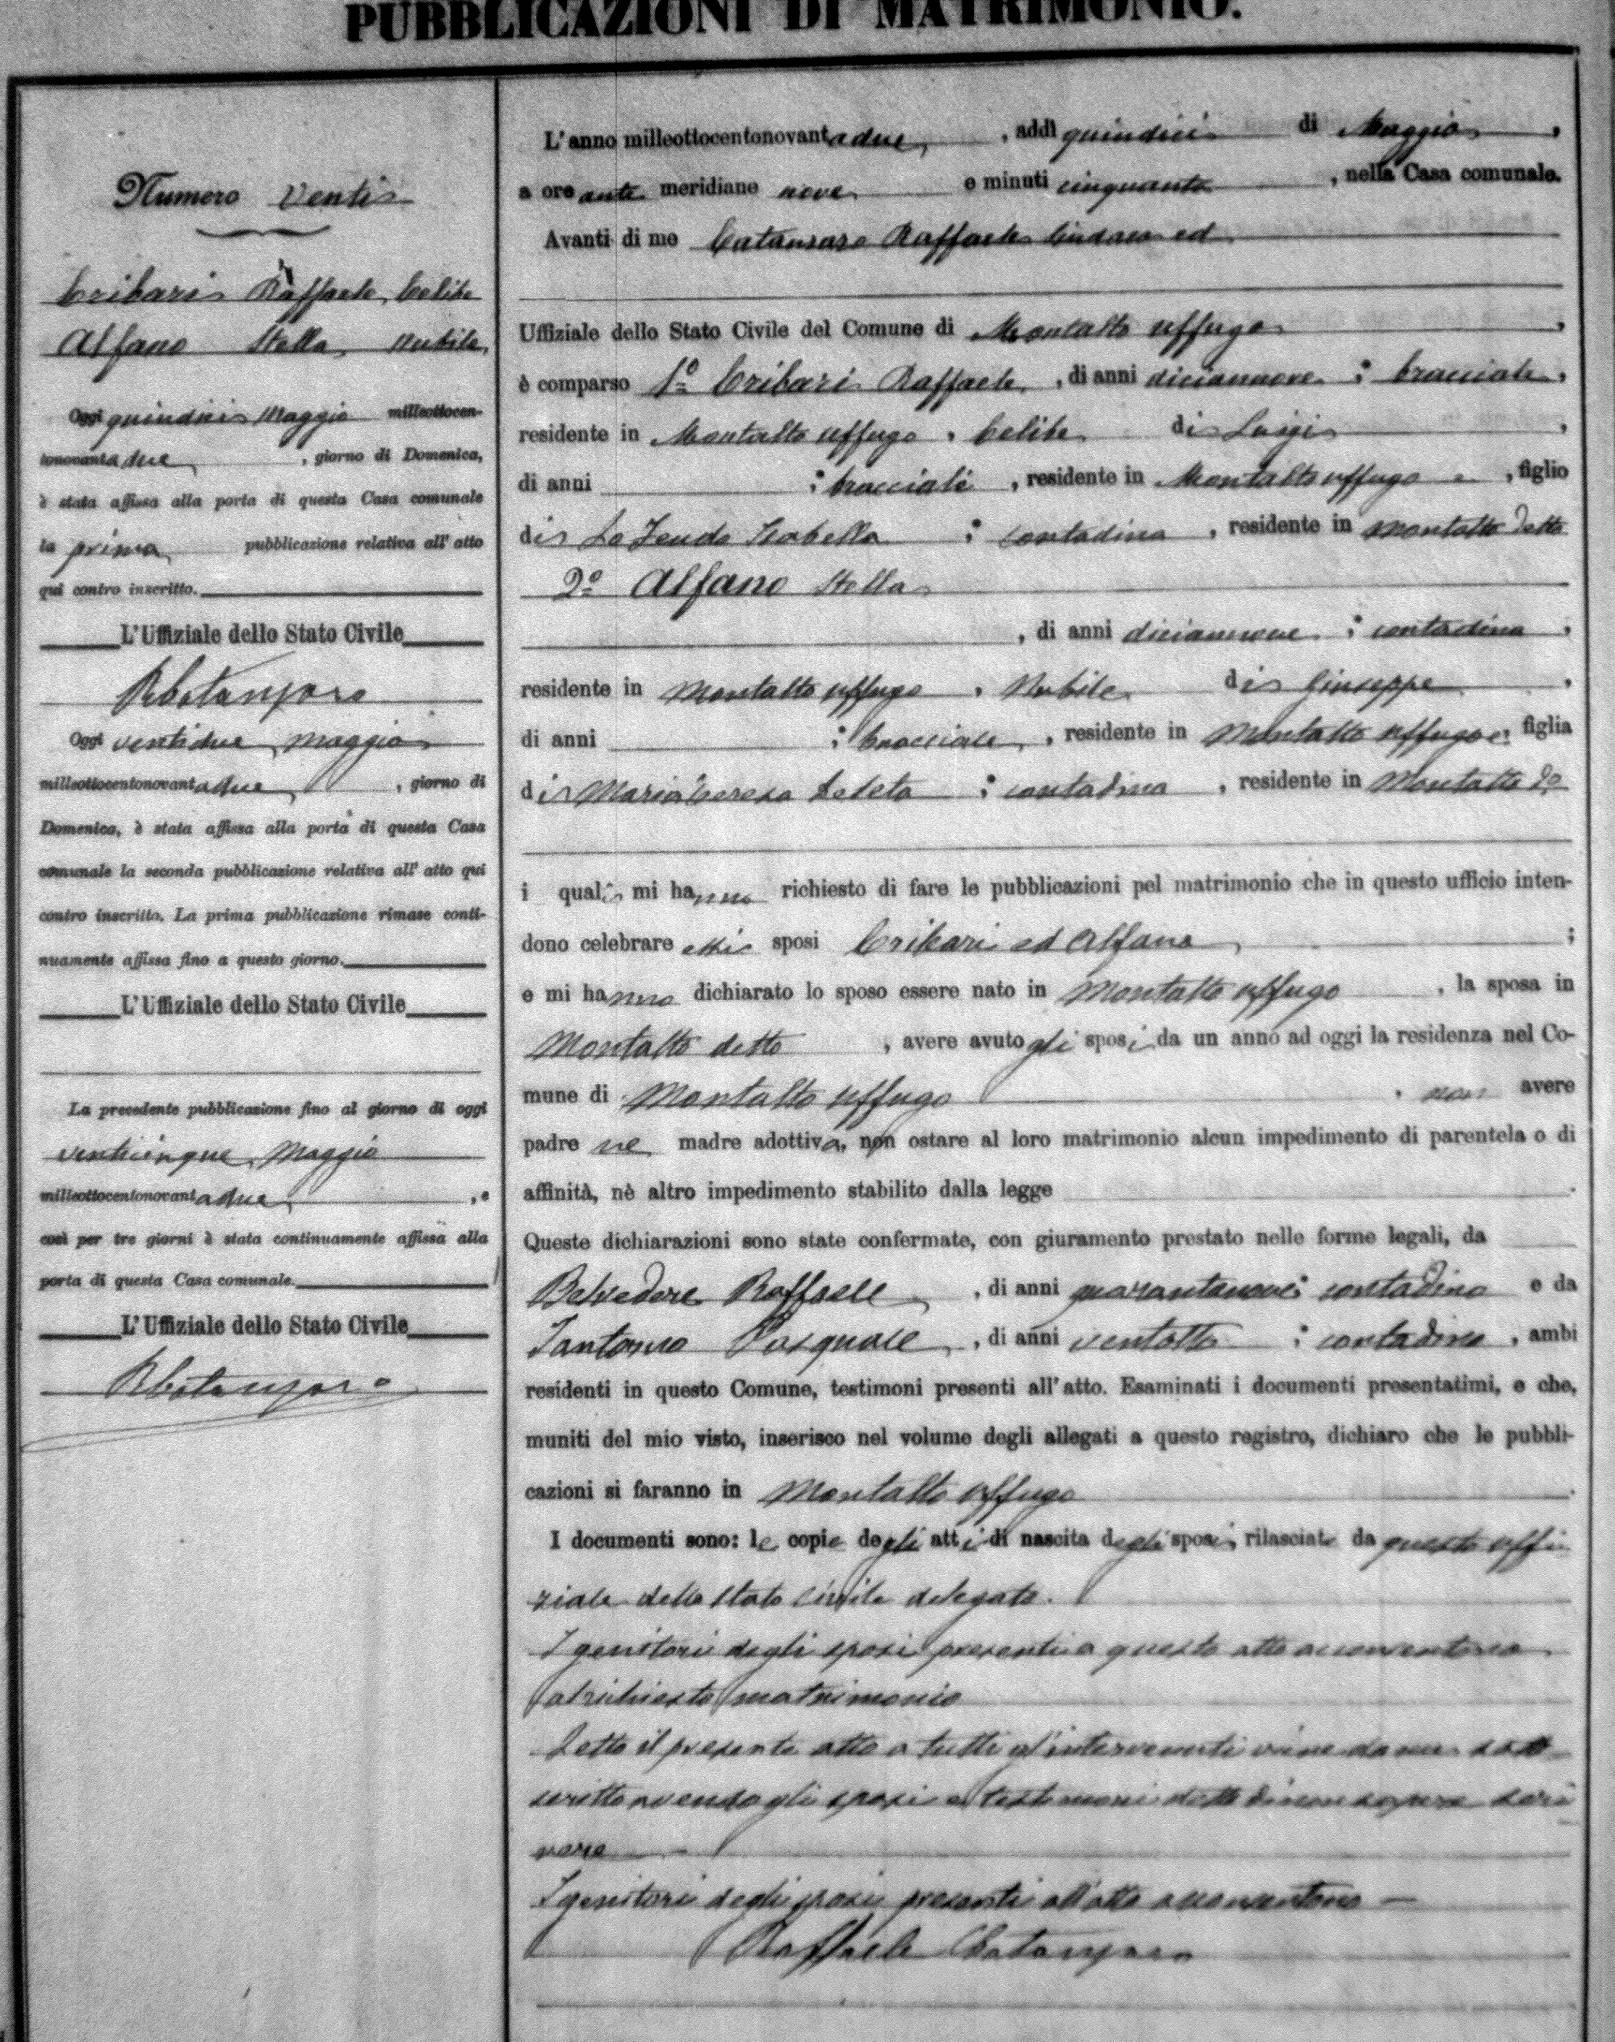 PUBBLICAZIONI DI MATRIMONIO.
Numero Venti
Cribari Raffaele Celibe
Alfano Stella nubile
Oggi quindici Maggio milleottocen-
tonovantadue, giorno di Domenica,
è stata affissa alla porta di questa Casa comunale
la prima pubblicazione relativa all' atto
qui contro inscritto.
L'Uffiziale dello Stato Civile
RCatanzaro
Oggi ventidue Maggio
milleottocentonovantadue, giorno di
Domenica, è stata affissa alla porta di questa Casa
comunale la seconda pubblicazione relativa all' atto qui
contro inscritto. La prima pubblicazione rimase conti-
nuamente affissa fino a questo giorno.
L'Uffiziale dello Stato Civile
La precedente pubblicazione fino al giorno di oggi
venticinque Maggio
milleottocentonovantadue, e
così per tre giorni è stata continuamente affissa alla
porta di questa Casa comunale.
L'Uffiziale dello Stato Civile
RCatanzaro
L'anno milleottocentonovantadue, addì quindici di Maggio,
a ore ante meridiane nove e minuti cinquanta, nella Casa comunale.
Avanti di me Catanzaro Raffaele Sindaco ed
Uffiziale dello Stato Civile del Comune di Montalto Uffugo,
è comparso 1º Cribari Raffaele, di anni diciannove; bracciale,
residente in Montalto Uffugo, Celibe di Luigi,
di anni ; bracciale, residente in Montalto Uffugo e, figlio
di Lo Feudo Isabella; contadina, residente in Montalto detto
2º Alfano Stella
, di anni diciannove; contadina,
residente in Montalto Uffugo, Nubile di Giuseppe,
di anni ; bracciale, residente in Montalto Uffugo e, figlia
di Maria Teresa; contadina, residente in Montalto do
i quali mi hanno richiesto di fare le pubblicazioni pel matrimonio che in questo ufficio inten-
dono celebrare essi sposi Cribari ed Alfano;
e mi hanno dichiarato lo sposo essere nato in Montalto Uffugo, la sposa in
Montalto detto, avere avuto gli sposi da un anno ad oggi la residenza nel Co-
mune di Montalto Uffugo, non avere
padre ne madre adottiva, non ostare al loro matrimonio alcun impedimento di parentela o di
affinità, nè altro impedimento stabilito dalla legge.
Queste dichiarazioni sono state confermate, con giuramento prestato nelle forme legali, da
Belvedere Raffaele, di anni quarantanove; contadino e da
Santoruo Pasquale, di anni ventotto; contadino, ambi
residenti in questo Comune, testimoni presenti all'atto. Esaminati i documenti presentatimi, e che,
muniti del mio visto, inserisco nel volume degli allegati a questo registro, dichiaro che le pubbli-
cazioni si faranno in Montalto Uffugo.
I documenti sono: le copie degli atti di nascita degli sposi, rilasciate da questo uffi
ziale dello Stato Civile delegato.
I genitori degli sposi presenti a questo atto acconsentono
al richiesto matrimonio
Letto il presente atto a tutti gl'intervenuti viene da me sotto=
scritto avendo gli sposi e testimoni detto di non sapere scri
vere
I genitori degli sposi presenti all'atto acconsentono —
Raffaele Catanzaro